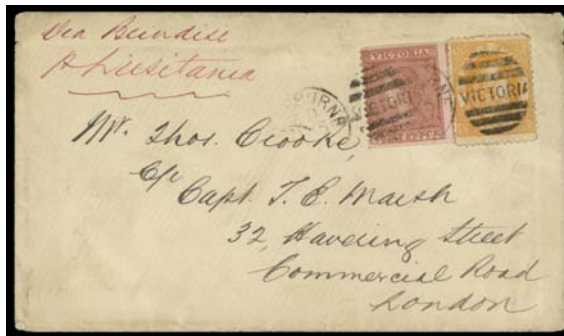 Via Brindisi
Lusitania
VICTORIA
VICTORIA
VICTORIA
Mr. Thos. Crooke,
C/o
Capt. T. E. Marsh
32, Havering Street
Commercial Road
London